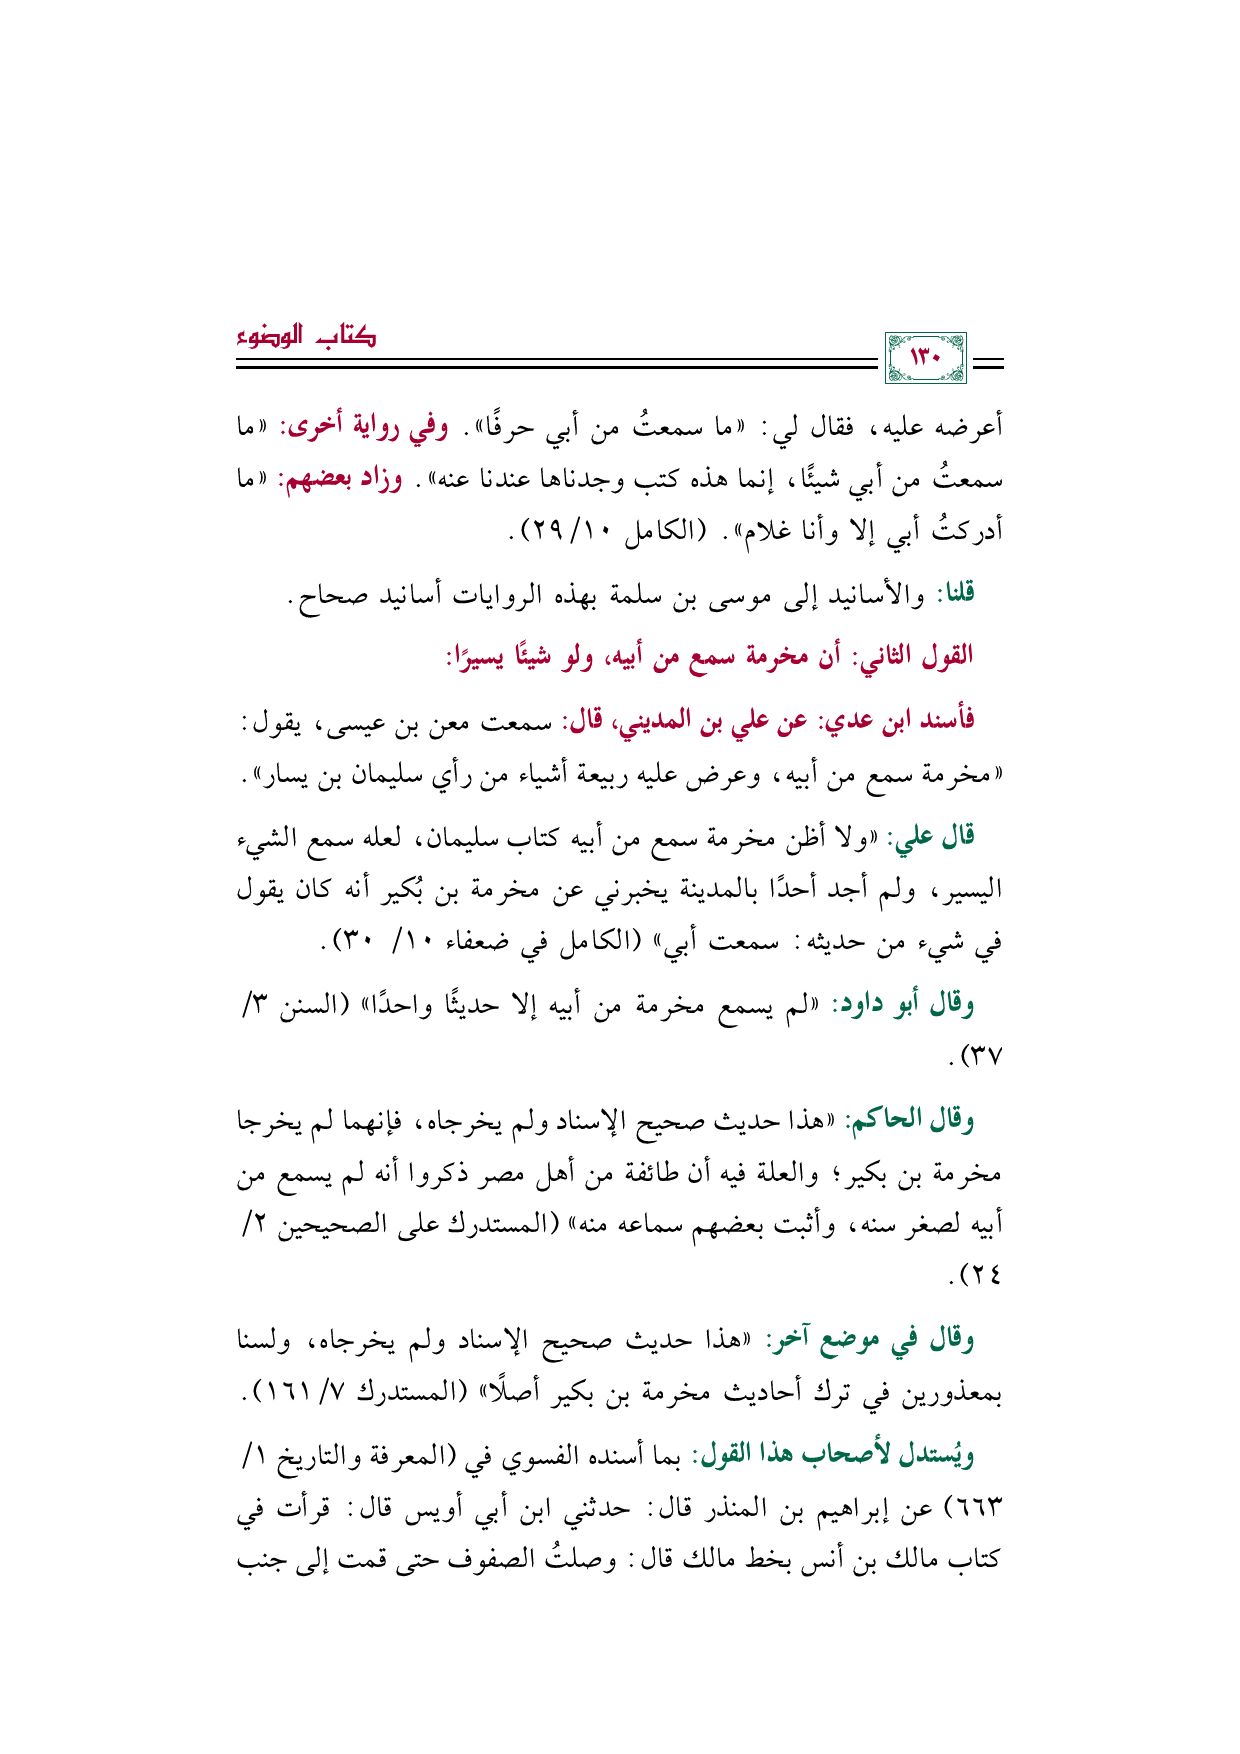 كتاب الوضوء
١٣٠
أعرضه عليه، فقال لي: «ما سمعتُ من أبي حرفًا». وفي رواية أخرى: «ما
سمعتُ من أبي شيئًا، إنما هذه كتب وجدناها عندنا عنه». وزاد بعضهم: «ما
أدركتُ أبي إلا وأنا غلام». (الكامل ١٠/ ٢٩).
قلنا: والأسانيد إلى موسى بن سلمة بهذه الروايات أسانيد صحاح.
القول الثاني: أن مخرمة سمع من أبيه، ولو شيئًا يسيرًا:
فأسند ابن عدي: عن علي بن المديني، قال: سمعت معن بن عيسى، يقول:
«مخرمة سمع من أبيه، وعرض عليه ربيعة أشياء من رأي سليمان بن يسار».
قال علي: «ولا أظن مخرمة سمع من أبيه كتاب سليمان، لعله سمع الشيء
اليسير، ولم أجد أحدًا بالمدينة يخبرني عن مخرمة بن بُكير أنه كان يقول
في شيء من حديثه: سمعت أبي» (الكامل في ضعفاء ١٠/ ٣٠).
وقال أبو داود: «لم يسمع مخرمة من أبيه إلا حديثًا واحدًا» (السنن ٣/
٣٧).
وقال الحاكم: «هذا حديث صحيح الإسناد ولم يخرجاه، فإنهما لم يخرجا
مخرمة بن بكير؛ والعلة فيه أن طائفة من أهل مصر ذكروا أنه لم يسمع من
أبيه لصغر سنه، وأثبت بعضهم سماعه منه» (المستدرك على الصحيحين ٢/
٢٤).
وقال في موضع آخر: «هذا حديث صحيح الإسناد ولم يخرجاه، ولسنا
بمعذورين في ترك أحاديث مخرمة بن بكير أصلًا» (المستدرك ٧/ ١٦١).
ويُستدل لأصحاب هذا القول: بما أسنده الفسوي في (المعرفة والتاريخ ١/
٦٦٣) عن إبراهيم بن المنذر قال: حدثني ابن أبي أويس قال: قرأت في
كتاب مالك بن أنس بخط مالك قال: وصلتُ الصفوف حتى قمت إلى جنب